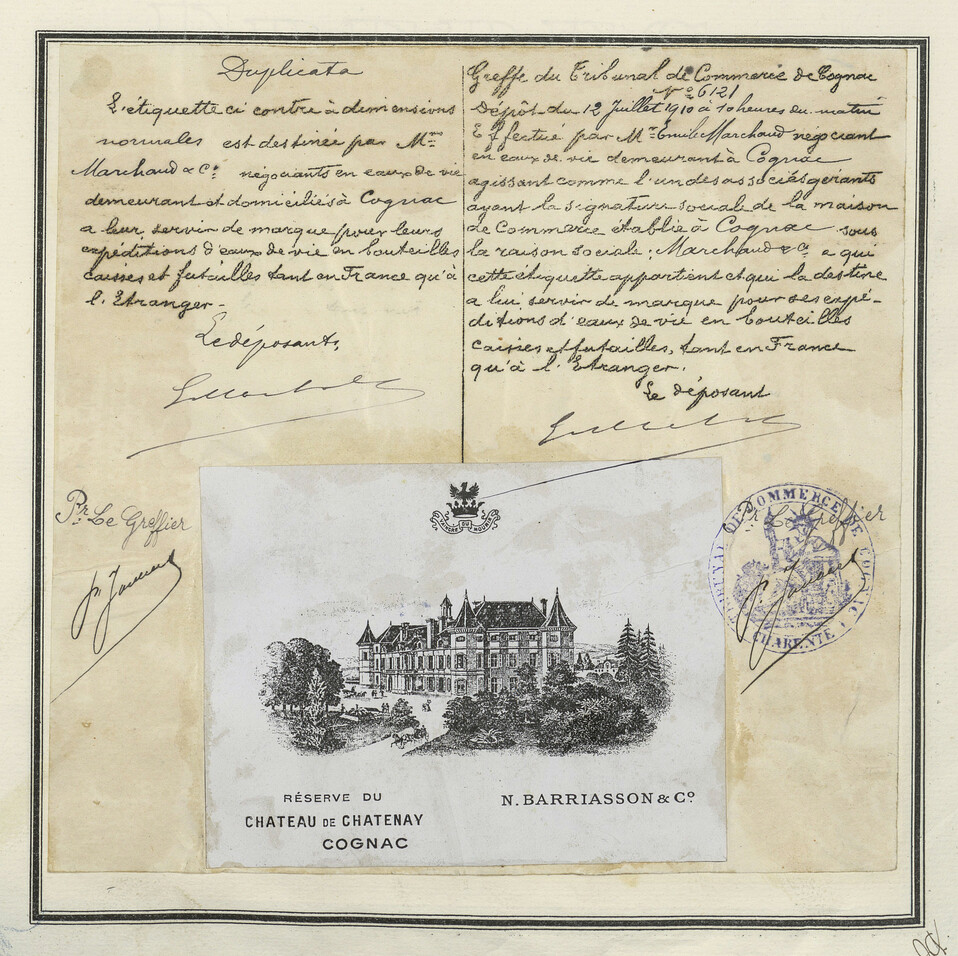 Duplicata
L'étiquette ci contre à dimensions
normales est destinée par Mrs
Marchaud & Cº négociants en eaux de vie
demeurant et domiciliés à Cognac
a leur servir de marque pour leurs
expéditions d'eaux de vie en bouteilles
caisses et futailles tant en France qu'à
l'Etranger.
Le déposant,
Pr Le Greffier
Greffe du Tribunal de Commerce de Cognac
Nº 6121
Dépôt du 12 Juillet 1910 à 10 heures du matin
Effectué par Mr Emile Marchaud négociant
en eaux de vie demeurant à Cognac
agissant comme l'un des associés gérants
ayant la signature sociale de la maison
de Commerce établie à Cognac sous
la raison sociale: Marchaud & Cº a qui
cette étiquette appartient et qui la destine
a lui servir de marque pour ses expé-
ditions d'eaux de vie en bouteilles
caisses et futailles, tant en France
qu'à l'Etranger.
Le déposant
Pr Le Greffier
TRIBUNAL DE COMMERCE DE COGNAC
CHARENTE
RÉSERVE DU
CHATEAU DE CHATENAY
COGNAC
N. BARRIASSON & Cº